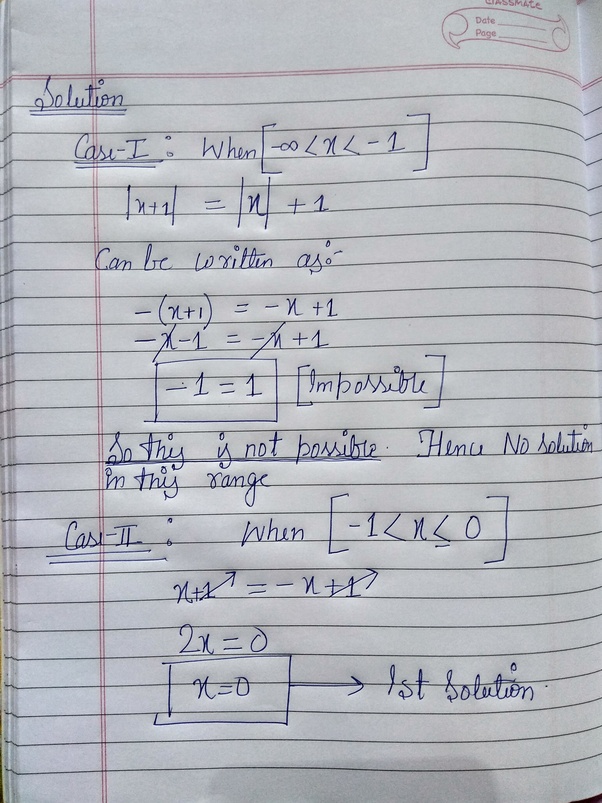 CLASSMATE
Date
Page
Solution
Case-I : When [-∞ < x < -1]
|x+1| = |x| + 1
Can be written as:-
-(x+1) = -x +1
-x-1 = -x+1
-1 = 1 [Impossible]
So this is not possible. Hence No solution
in this range
Case-II : When [-1 < x ≤ 0]
x+1 = -x+1
2x = 0
x=0 → 1st Solution.